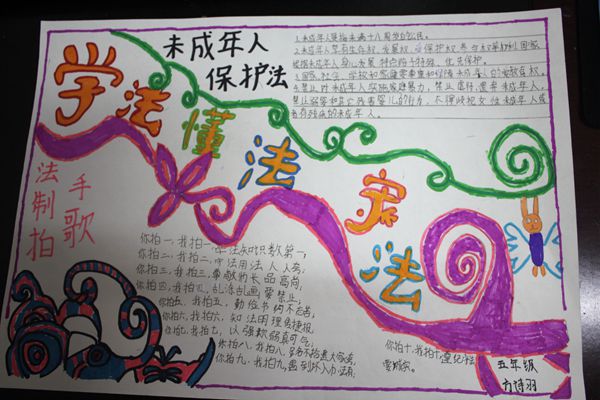 未成年人
保护法
学法懂法守法
1.未成年人是指未满十八周岁的公民。
2.未成年人享有生存权、发展权、受保护权、参与权等权利,国家
根据未成年人身心发展特点给予特殊、优先保护。
3.国家、社会、学校和家庭尊重和保障未成年人的受教育权。
4.禁止对未成年人实施家庭暴力,禁止虐待、遗弃未成年人,
禁止溺婴和其它残害婴儿的行为,不得歧视女性未成年人或
者有残疾的未成年人。
法制拍手歌
你拍一,我拍一,学法知识数第一,
你拍二,我拍二,守法用法人人
你拍三,我拍三,尊敬师长品高尚,
你拍四,我拍四,乱涂乱画要禁止,
你拍五,我拍五,勤俭节约不怕苦,
你拍六,我拍六,知法明理
你拍七,我拍七,以强欺弱真可气,
你拍八,我拍八,
你拍九,我拍九,遇到坏人
你拍十,我拍十,遵纪守法
要踏实。
五年级
方诗羽